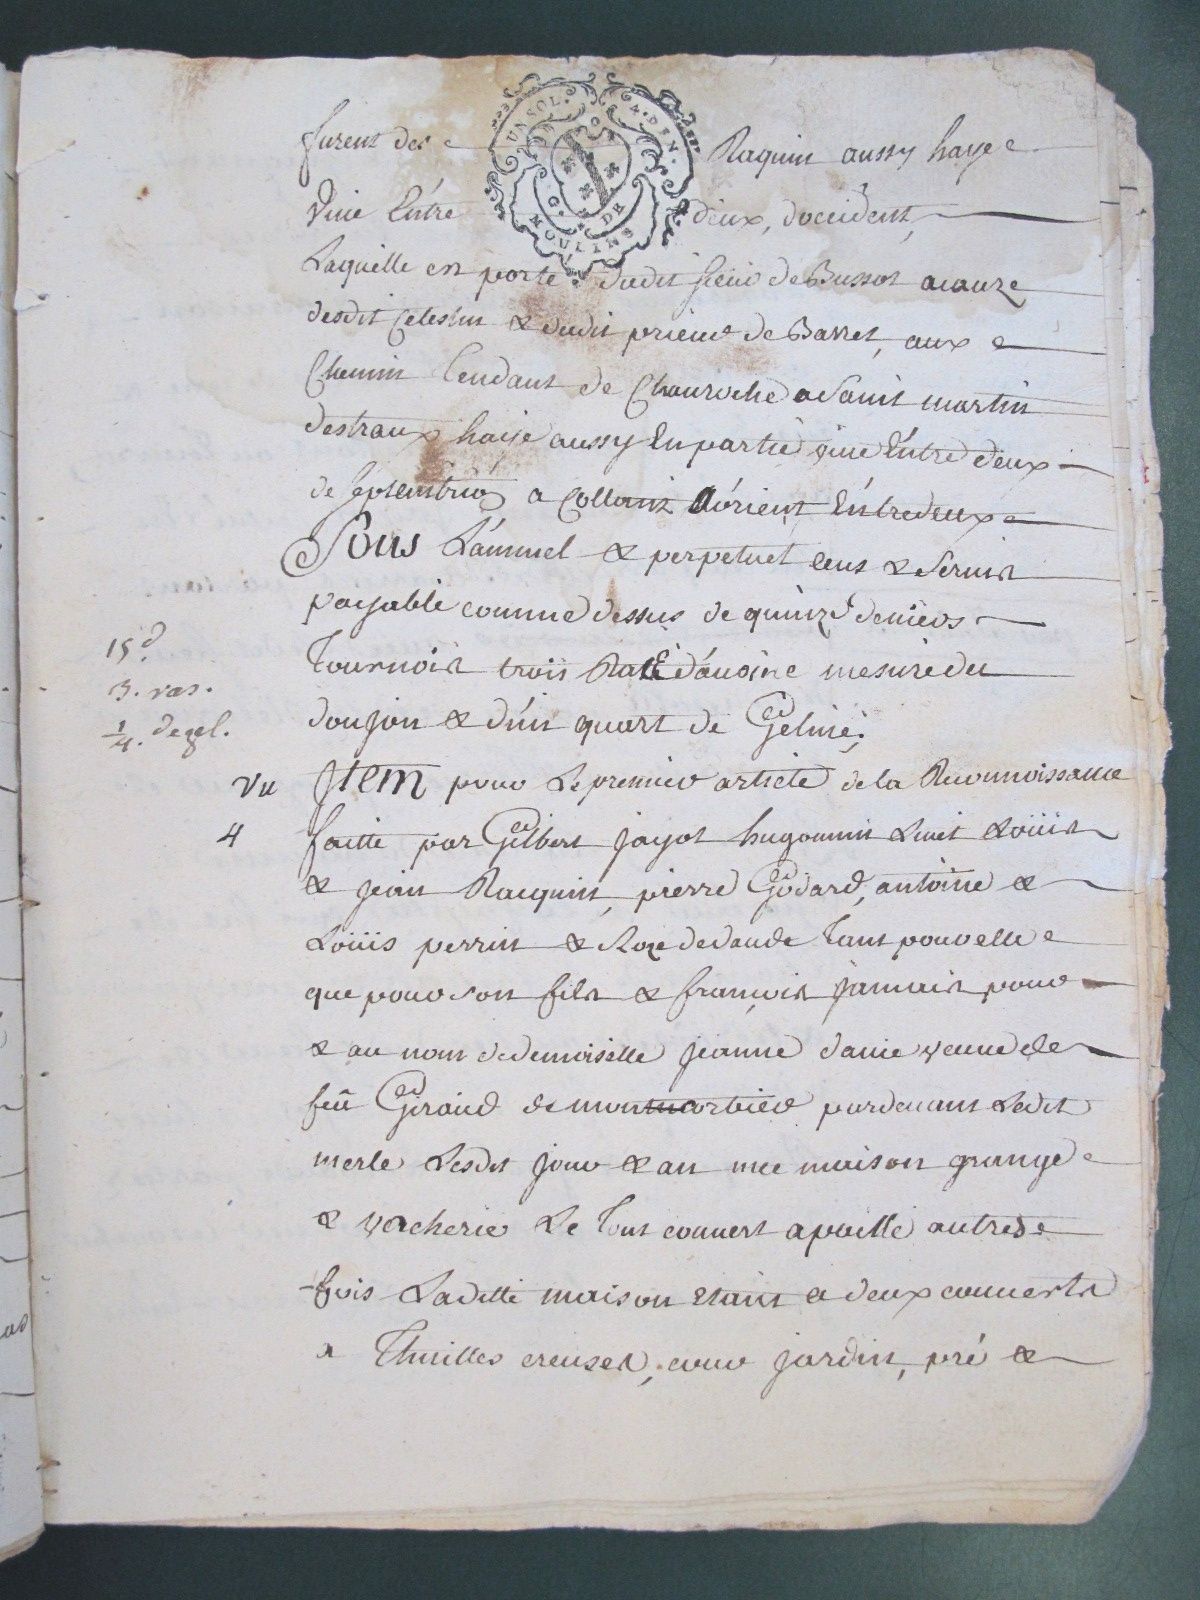 UN SOL. 4. DEN.
G. DE
MOULINS
furent des Raquin aussy haye
vive Entre deux, doccident,
Laquelle est porté dudit sieur de Bussot acauze
desdit Celestin & dudit prieur de Barret, aux
Chemin tendant de Chauroche a Saint martin
destraux haije aussy En partie vive Entre deux
de septentrion a Collant d'orient Entredeux
Sous L'annuel & perpetuel cens & servis
payable comme dessus de quinze deniers
Tournois trois Ras d'avoine mesure du
donjon & d'un quart de Geline;
15 d.
3. ras.
1/4. de gel.
Vu
4
Item pour Le premier article de la Reconnoissance
faitte par Gilbert jayot hugonnin Luet Loüis
& jean Racquin, pierre Godard, antoine &
Loüis perrin & Roze dedaude Tant pour elle
que pour son fils & françois jamais pour
& au nom de demoiselle jeanne danie veuve de
feû Giraud de montcorbier pardevant Ledit
merle Lesdit jour & an une maison grange
& vacherie Le Tout couvert a paille autrede
fois Laditte maison etant a deux couverts
a Thuilles creuses, cour jardin, pré &